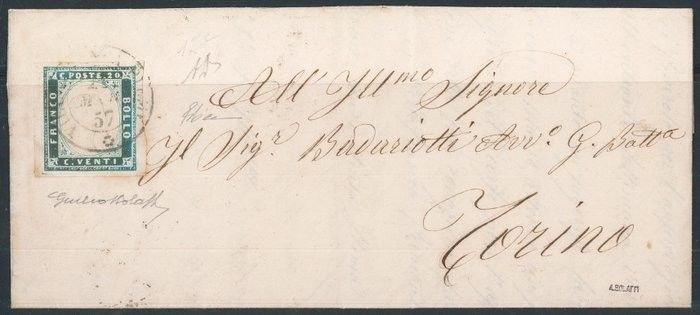 C. POSTE. 20
FRANCO
BOLLO
C. VENTI
MAG
57
All' Ill.mo Signore
Il Sig.r Berdariotti Avv.o G. Batt.a
Torino
A. BOLAFFI